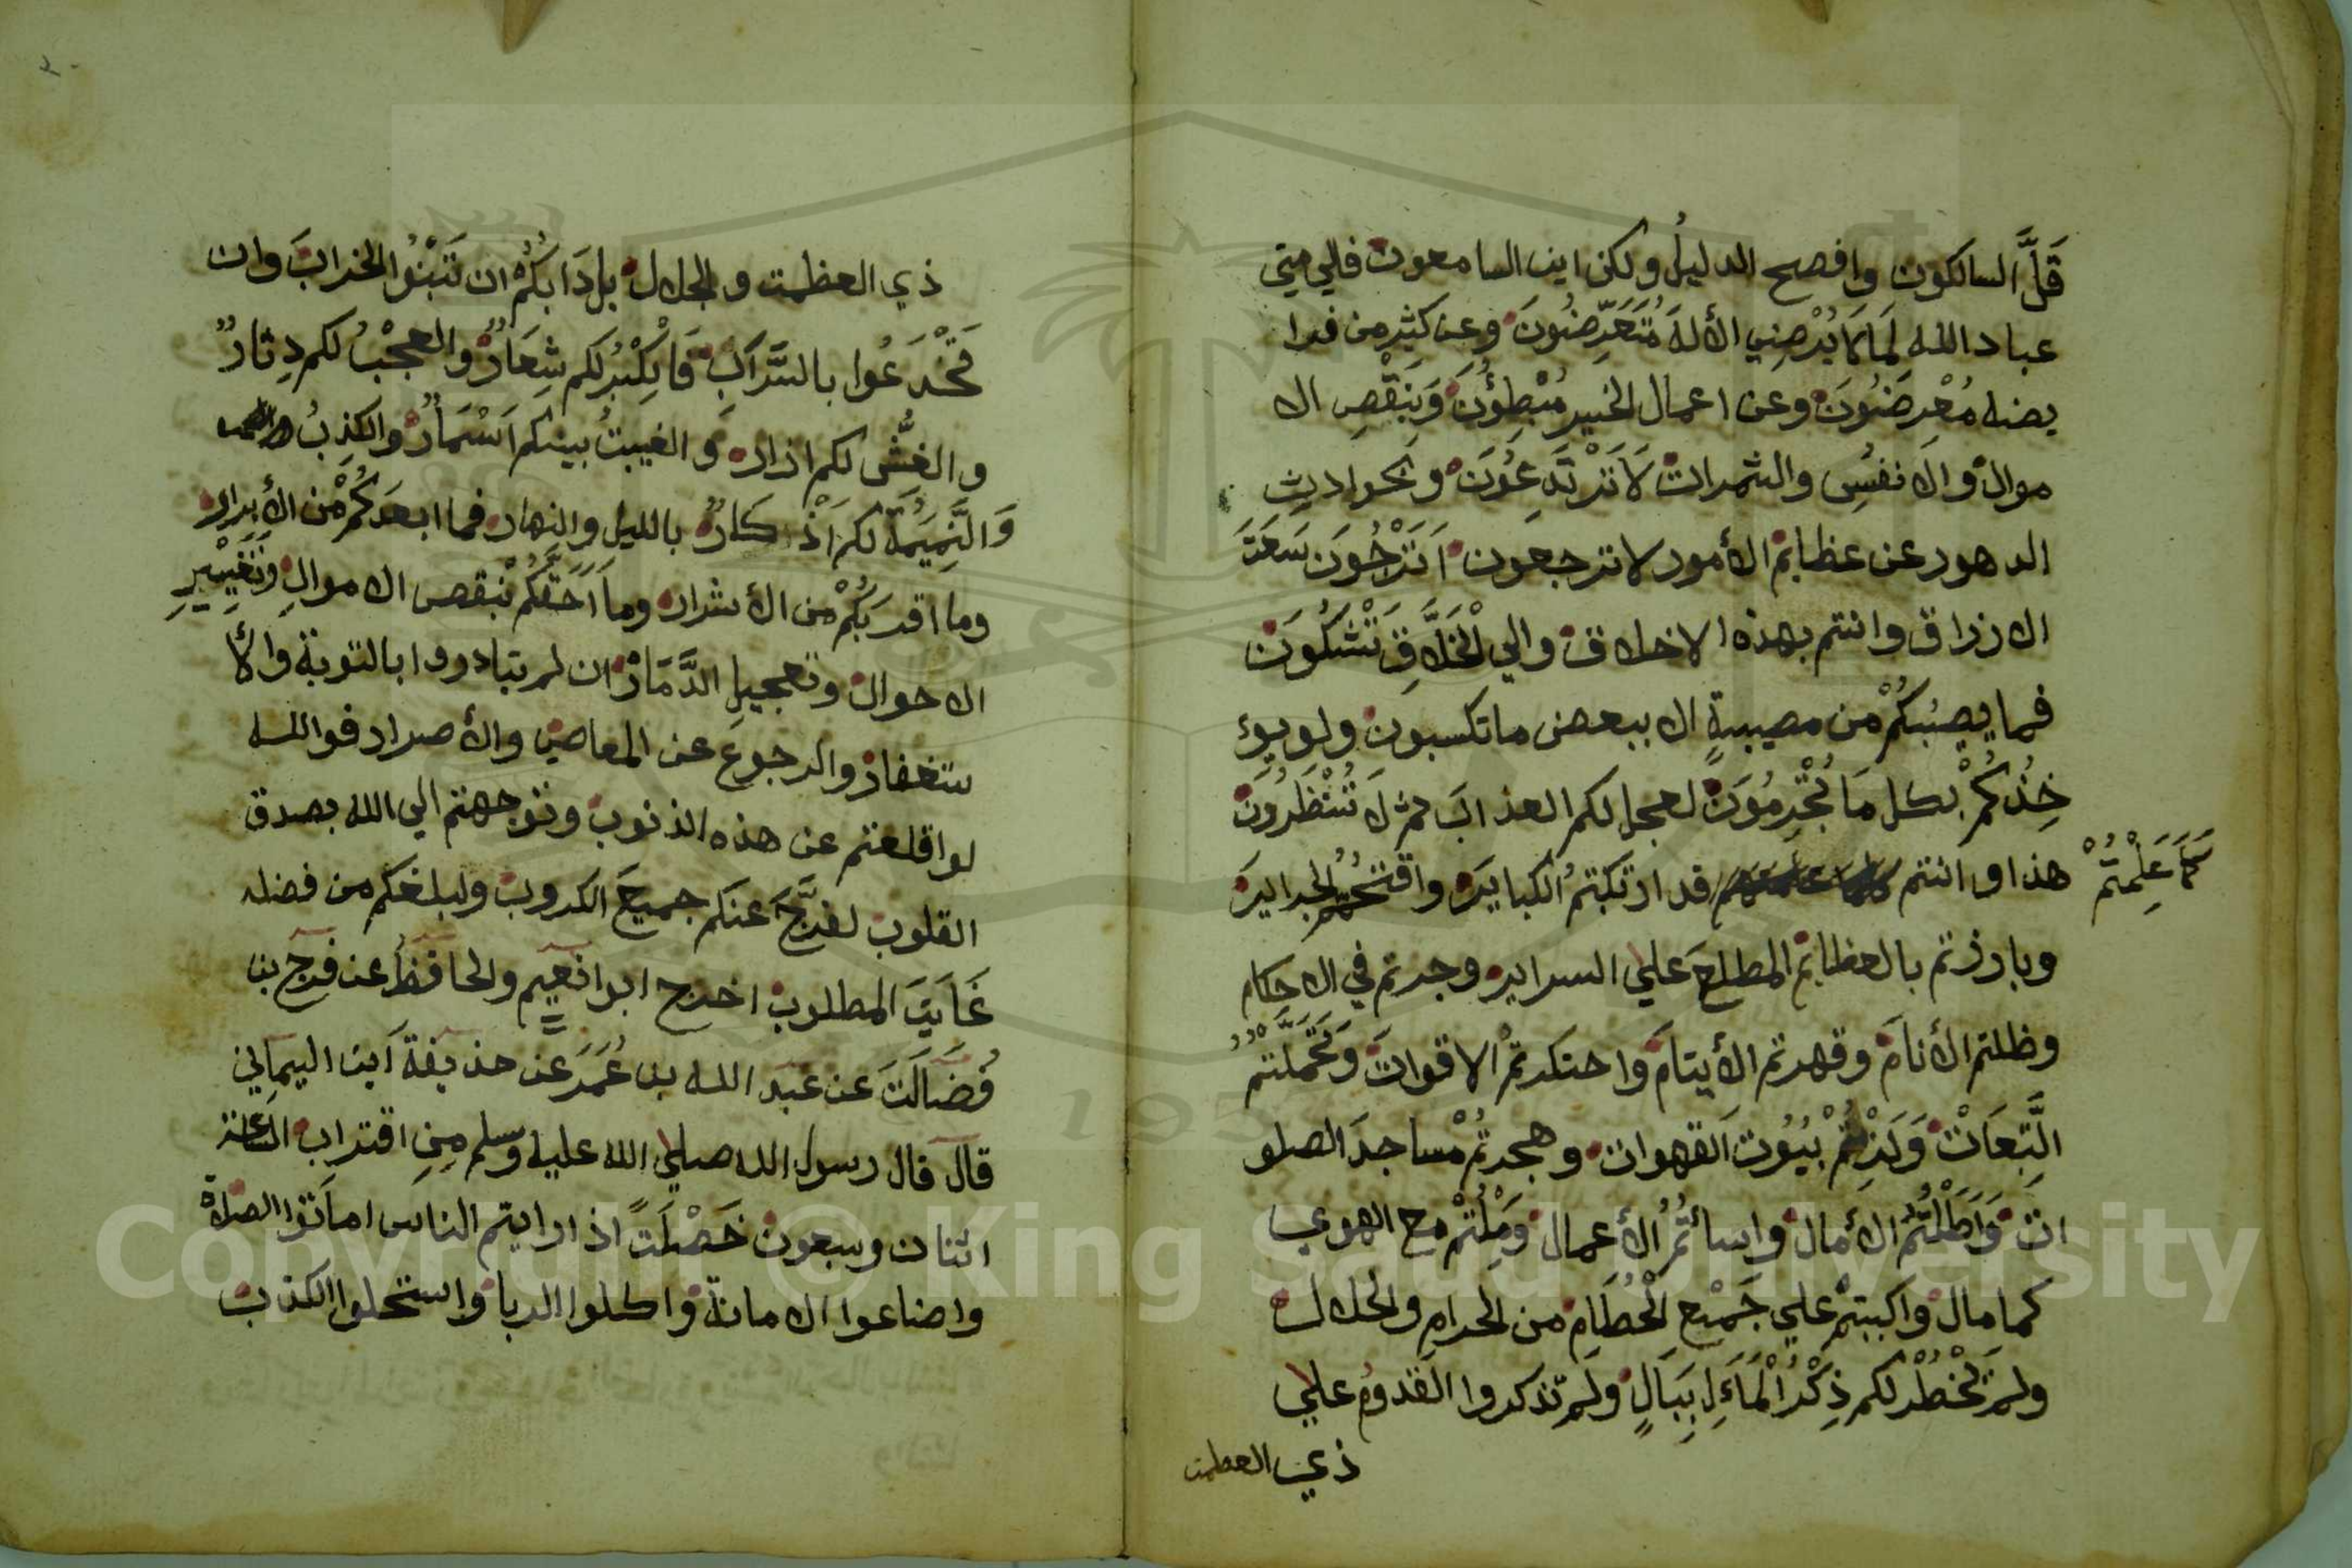 قَلَّ السالكون وافصح الدليلُ ولكن اين السامعون فالي متي
عباد الله لِمَا لَا يُرْضِي الألهَ مُتَعَرِّضُونَ وعن كثير من فرا
يضه مُعْرِضُونَ وعن اعمال الخير مُبْطِؤُنَ وَبِنَقْصِ الا
موال والانفسِ والثمرات لَا تَرْتَدِعُونَ وبحواديث
الدهور عن عظايم الأمور لا ترجعون اَتَرْجُونَ سَعَتَ
الارزاق وانتم بهذه الاخلاق والي الْخَلَّاقِ تَشْكُونَ
فما يصيبكُمْ من مصيبةٍ الا ببعض ما تكسبون ولو يوء
خِذُكُمْ بكل مَا تُجْرِمُونَ لعجل لكم العذابَ ثم لَا تُنْظَرُونَ
هذا وانتم قد ارتكبتمُ الكبايرَ واقتحمتم الجرايرَ
كَمَا عَلِمْتُمْ
وبارزتم بالعظايم المطلعَ علي السراير وجرتم في الاحكام
وظلتم الأنامَ وقهرتم الأيتامَ واحتكرتمُ الاقواتَ وَتَحَمَّلْتُمُ
التَّبِعَاتْ وَلَزِمْتُمْ بُيُوْتَ القهوات وهجرتُمْ مساجدَ الصلو
ات وَاَطَلْتُمُ الأمال واسأتُمُ الأعمال وَمِلْتُمْ مع الهوي
كما مال واكببتم علي جَمْعِ الْحُطَامِ من الحرامِ والحلال
ولم يَخْطُرْ لكم ذِكْرُ الْمَاَلِ بِبَالٍ ولم تذكروا القدومَ علي
ذي العظمت
ذي العظمت والجلال بل دَابُكُمْ ان تَبْنُوا الخرابَ وان
تَخْدَعُوا بالسَّرَابِ فَالْكِبْرُ لكم شِعَارٌ والعجْبُ لكم دِثارٌ
والغِشُّ لكم ازار والغيبتُ بينكم اَسْمَارٌ والكذِبُ
وَالنَّمِيْمَةُ لكم اَذْكارٌ بالليل والنهار فما ابعدَكُمْ من الأبرار
وما اقربَكُمْ من الأشرار وما اَحَقَّكُمْ بنقص الاموالِ وَتَغْيِيْرِ
الاحوال وتعجيلِ الدَّمَارْ ان لم تبادروا بالتوبة والأ
ستغفار والرجوعِ عن المعاصي والأصرار فوالله
لو اقلعتم عن هذه الذنوب وتوجهتم الي الله بصدق
القلوب لفرَّجَ عنكم جميعَ الكروب ولبلغكم من فضله
غَايَتَ المطلوب اخرج ابوا نعيم والحافظُ عن فرج بن
فُضَالَتَ عن عبد الله بن عُمَرَ عن حذيفة اَبن اليماني
قال قال رسول الله صلي الله عليه وسلم مِنِ اقتراب الساعة
اثنان وسبعون خَصْلَتً اذا رايتم الناس اماتوا الصلاة
واضاعوا الامانة واكلوا الربا واستحلوا الكذب
Copyright © King Saud University
195